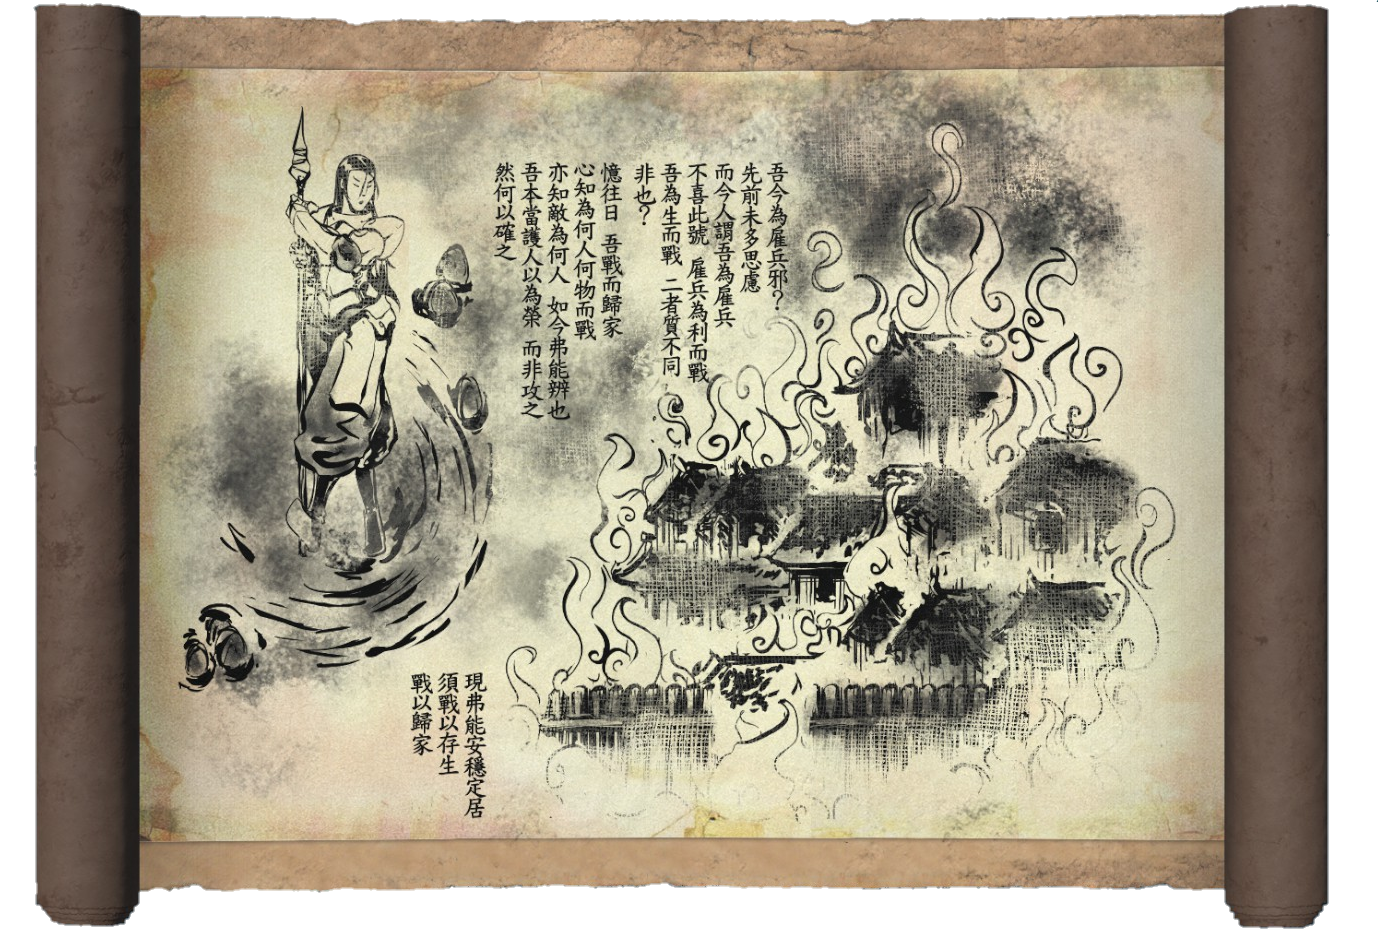 吾今為雇兵邪？
先前未多思慮
而今人謂吾為雇兵
不喜此號 雇兵為利而戰
吾為生而戰 二者質不同
非也？
憶往日 吾戰而歸家
心知為何人何物而戰
亦知敵為何人 如今弗能辨也
吾本當護人以為榮 而非攻之
然何以確之
現弗能安穩定居
須戰以存生
戰以歸家